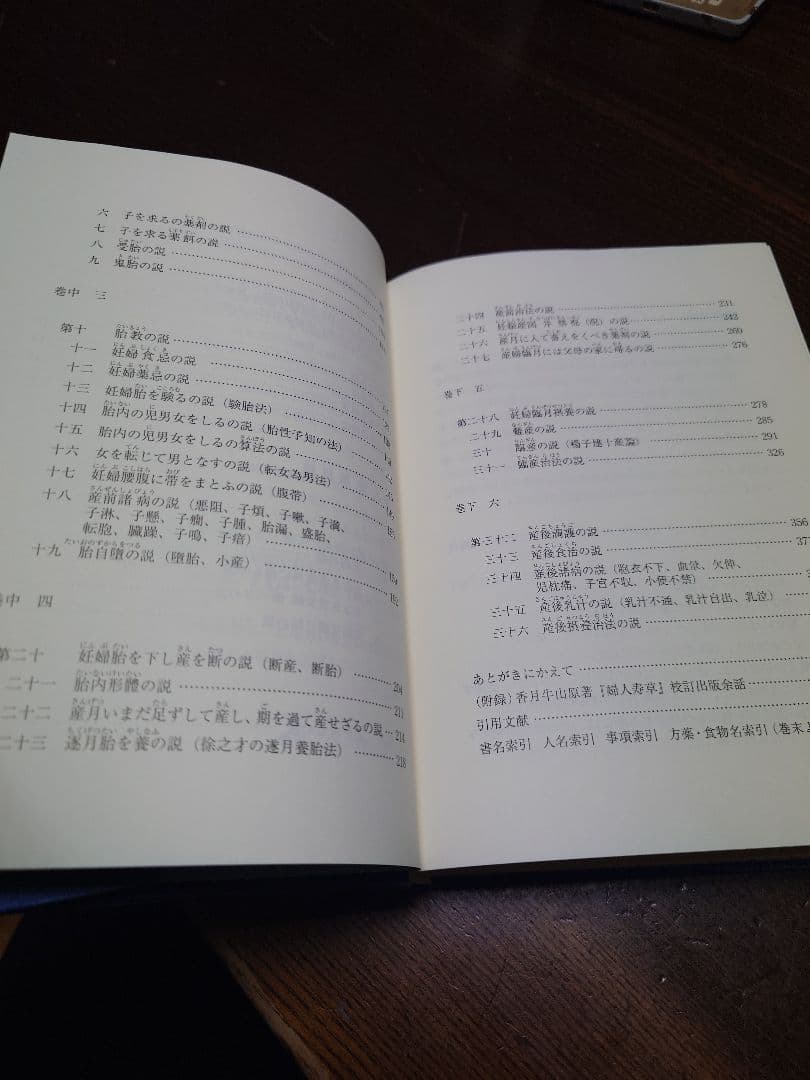 六 子を求るの薬剤の説
七 子を求る薬餌の説
八 受胎の説
九 鬼胎の説
巻中 三
第十 胎教の説
十一 妊婦食忌の説
十二 妊婦薬忌の説
十三 妊婦胎を験るの説(験胎法)
十四 胎内の児男女をしるの説(胎性子知の法)
十五 胎内の児男女をしるの算法の説
十六 女を転じて男となすの説(転女為男法)
十七 妊婦腰腹に帯をまとふの説(腹帯)
十八 産前諸病の説(悪阻、子煩、子嗽、子満、
子淋、子懸、子癇、子腫、胎漏、盛胎、
転胞、臓躁、子鳴、子瘖)
十九 胎自堕の説(堕胎、小産)
巻中 四
第二十 妊婦胎を下し産を断の説(断産、断胎) 204
二十一 胎内形體の説 211
二十二 産月いまだ足ずして産し、期を過て産せざるの説 214
二十三 逐月胎を養の説(徐之才の逐月養胎法) 218
二十四 産前治法の説 231
二十五 妊婦産 の説 242
二十六 産月に入て蓄えをくべき薬剤の説 269
二十七 産婦臨月には父母の家に帰るの説 276
巻下 五
第二十八 妊婦臨月摂養の説 278
二十九 難産の説 285
三十 臨産の説(楊子建十産論) 291
三十一 臨産治法の説 326
巻下 六
第三十二 産後調護の説 356
三十三 産後食治の説 37
三十四 産後諸病の説(胞衣不下、血欬、欠伸、
児枕痛、子宮不収、小便不禁)
三十五 産後乳汁の説(乳汁不通、乳汁自出、乳泣)
三十六 産後摂養治法の説
あとがきにかえて
(附録)香月牛山原著『婦人寿草』校訂出版余話
引用文献
書名索引 人名索引 事項索引 方薬・食物名索引(巻末